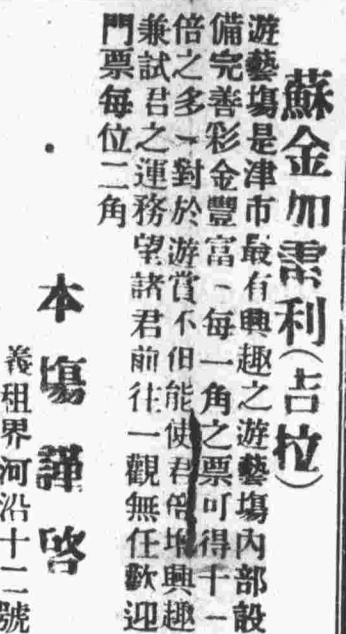 蘇金加雷利(吉拉)
遊藝塲是津市最有興趣之遊藝塲內部設
備完善彩金豐富、每一角之票可得十一
倍之多、對於遊賞不但能使君倍增興趣
兼試君之運務望諸君前往一觀無任歡迎
門票每位二角
本塲謹啓
義租界河沿十二號